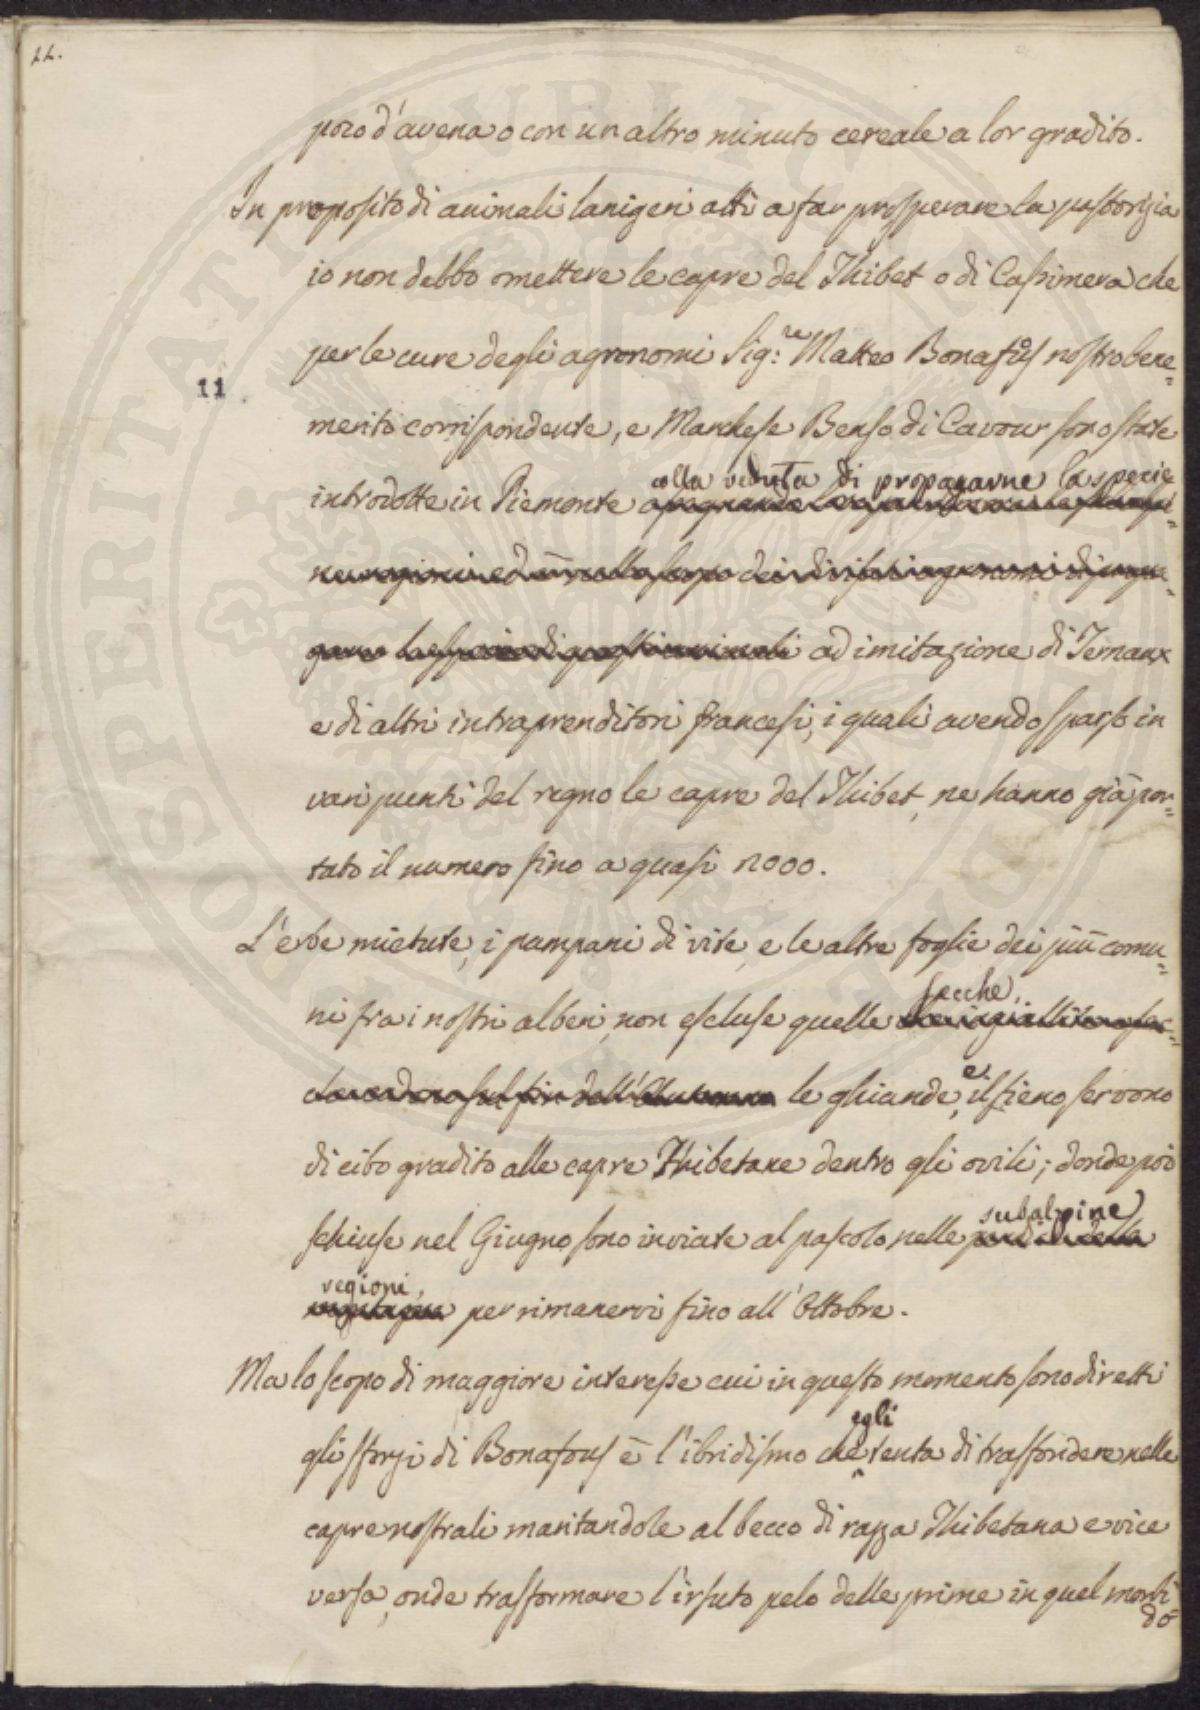 22.
poco d'avena o con un altro minuto cereale a lor gradito.
In proposito di animali lanigeri atti a far prosperare la pastorizia
io non debbo omettere le capre del Thibet o di Cassimera che
per le cure degli agronomi Sig:re Matteo Bonafous nostro bene=
11
merito corrispondente, e Marchese Benso di Cavour sono state
colla veduta di propagarne la specie
introdotte in Piemonte
ad imitazione di Ternaux
e di altri intraprenditori francesi, i quali avendo sparso in
vari punti del regno le capre del Thibet, ne hanno già por=
tato il numero fino a quasi 2000.
L'erbe mietute, i pampani di vite, e le altre foglie dei più comu=
secche,
ni fra i nostri alberi, non escluse quelle
dell'Autunno le ghiande, e il fieno servono
di cibo gradito alle capre Thibetane dentro gli ovili; donde poi
subalpine
schiuse nel Giugno sono inviate al pascolo nelle
regioni,
per rimanervi fino all'Ottobre.
Ma lo scopo di maggiore interesse cui in questo momento sono diretti
egli
gli sforzi di Bonafous è l'ibridismo che tenta di trasfondere nelle
capre nostrali maritandole al becco di razza Thibetana e vice
versa, onde trasformare l'irsuto pelo delle prime in quel morbi
do=
PROSPERITATI PUBLICAE